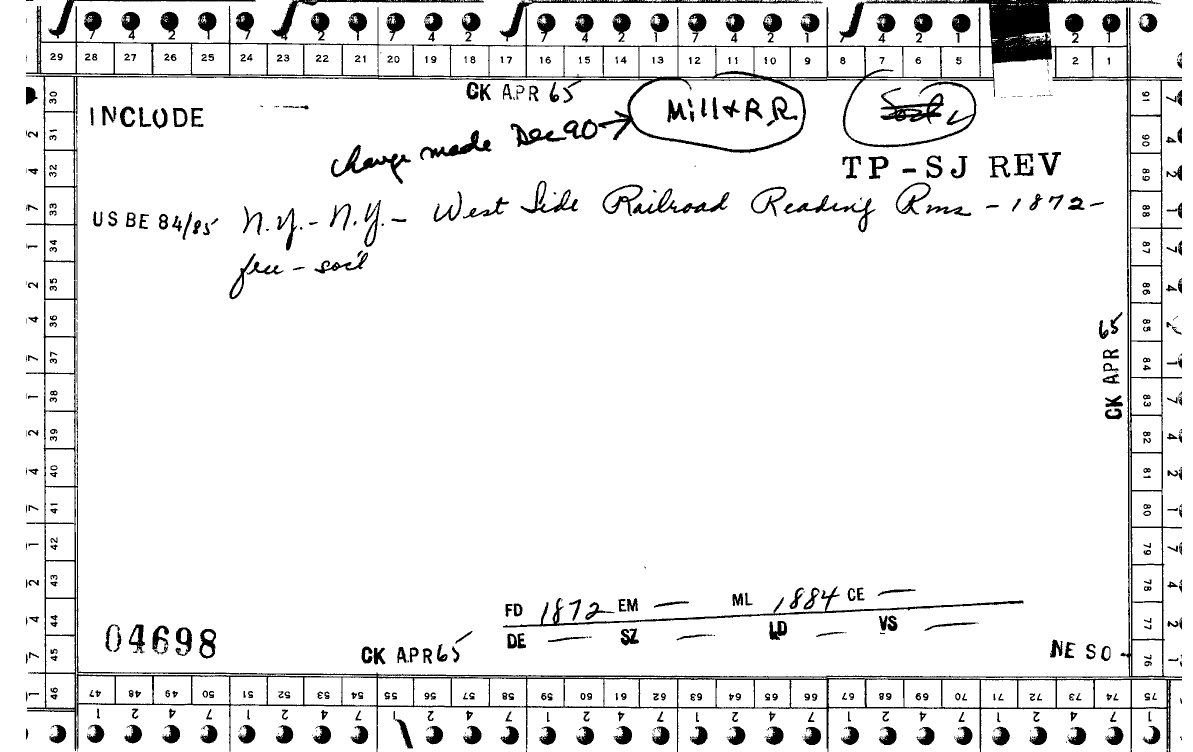 7 4 2 1 7 4 2 1 7 4 2 1 7 4 2 1 7 4 2 1 7 4 2 1 2 1
29 28 27 26 25 24 23 22 21 20 19 18 17 16 15 14 13 12 11 10 9 8 7 6 5 2 1
CK APR 65
INCLUDE
Mill & R.R.
change made Dec 90
TP-SJ REV
US BE 84/85 N.Y. - N.Y. - West Side Railroad Reading Rms - 1872 -
free - soc'l
CK APR 65
FD 1872 EM — ML 1884 CE —
DE — SZ — LD — VS —
04698
CK APR 65
NE SO -
30 31 32 33 34 35 36 37 38 39 40 41 42 43 44 45 46
2 4 7 1 2 4 7 1 2 4 7 1 2 4 7 1
91 90 89 88 87 86 85 84 83 82 81 80 79 78 77 76 75
47 48 49 50 51 52 53 54 55 56 57 58 59 60 61 62 63 64 65 66 67 68 69 70 71 72 73 74
1 2 4 7 1 2 4 7 1 2 4 7 1 2 4 7 1 2 4 7 1 2 4 7 1 2 4 7 1